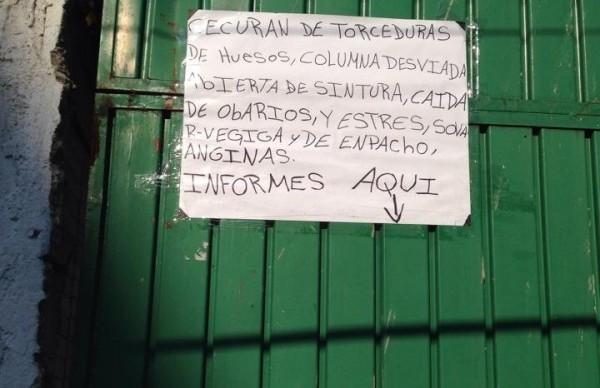 CECURAN DE TORCEDURAS
DE HUESOS, COLUMNA DESVIADA
ABIERTA DE SINTURA, CAIDA
DE OBARIOS, Y ESTRES, SOVA
R-VEGIGA Y DE ENPACHO,
ANGINAS.
INFORMES AQUI